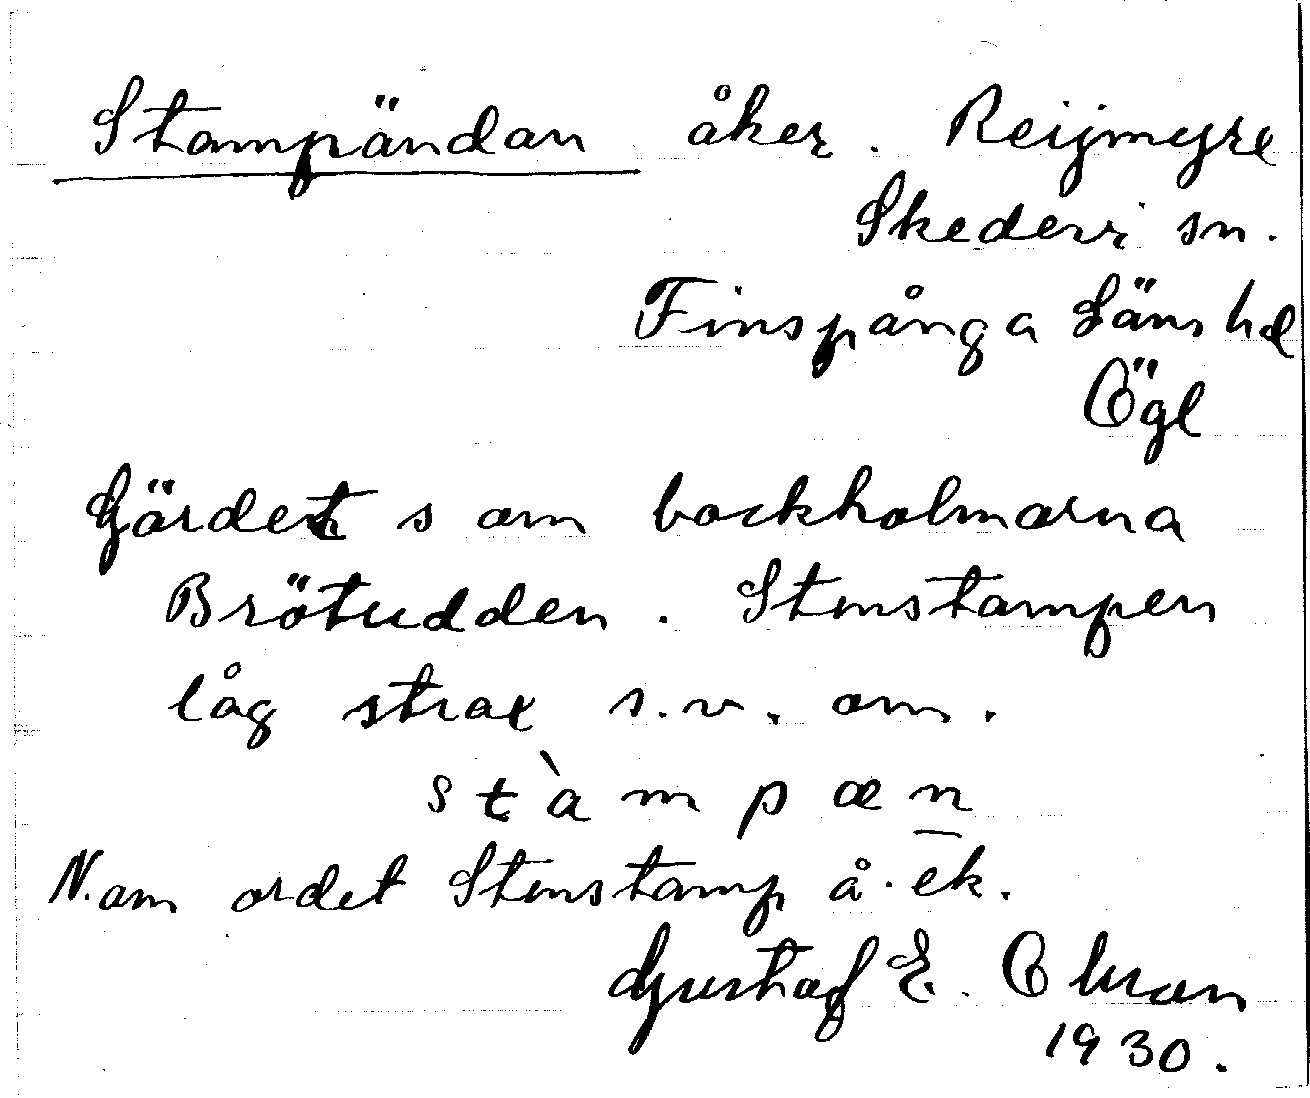 Stampändan åker. Reijmyre
Skedevi sn.
Finspånga Läns hd
Ögl
Gärdet s om bockholmarna
Brötudden. Stenstampen
låg strax s.v. om.
st`ampæn
N. om ordet Stenstamp å. ek.
Gustaf E. Olson
1930.